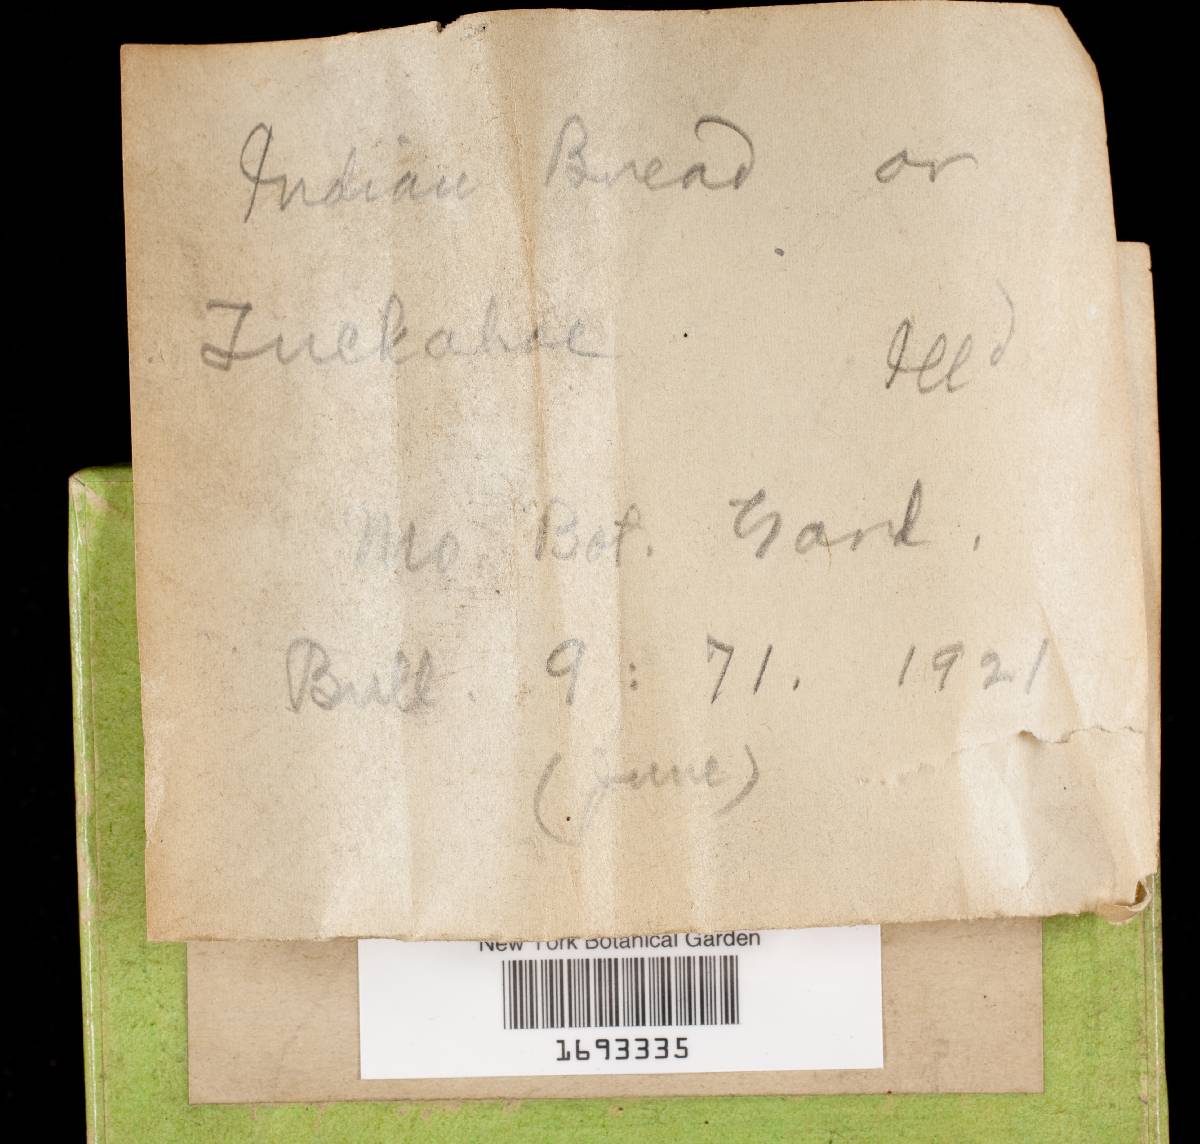 Indian Bread or
Tuckahoe Ill^d
Mo. Bot. Gard.
Bull. 9 : 71. 1921
(June)
New York Botanical Garden
1693335